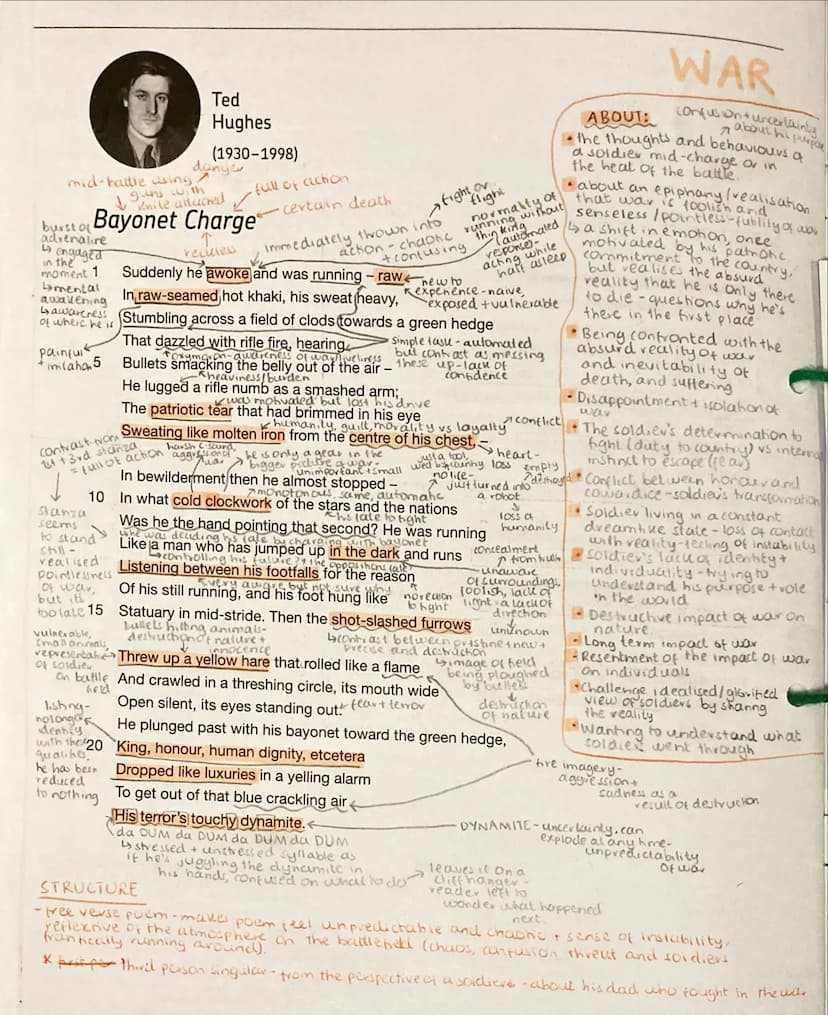 WAR
Ted
Hughes
(1930–1998)
mid-battle using
guns with
knife attached
danger
full of action
certain death
reckless
Bayonet Charge
immediately thrown into
action - chaotic
+ confusing
fight or
flight
normality of
running without
thinking
(automated
response-
acting while
half asleep
burst of
adrenaline
↳ engaged
in the
moment
↳ mental
awakening
↳ awareness
of where he is
1 Suddenly he awoke and was running – raw
In raw-seamed hot khaki, his sweat heavy,
Stumbling across a field of clods towards a green hedge
That dazzled with rifle fire, hearing
5 Bullets smacking the belly out of the air –
He lugged a rifle numb as a smashed arm;
The patriotic tear that had brimmed in his eye
Sweating like molten iron from the centre of his chest, –
In bewilderment then he almost stopped –
10 In what cold clockwork of the stars and the nations
Was he the hand pointing that second? He was running
Like a man who has jumped up in the dark and runs
Listening between his footfalls for the reason
Of his still running, and his foot hung like
15 Statuary in mid-stride. Then the shot-slashed furrows
Threw up a yellow hare that rolled like a flame
And crawled in a threshing circle, its mouth wide
Open silent, its eyes standing out.
He plunged past with his bayonet toward the green hedge,
20 King, honour, human dignity, etcetera
Dropped like luxuries in a yelling alarm
To get out of that blue crackling air
His terror's touchy dynamite.
new to
experience - naive,
exposed + vulnerable
simple task - automated
but contrast as messing
these up - lack of
confidence
heaviness/burden
was motivated but lost his drive
humanity, guilt, morality vs loyalty
conflict
heart-
empty
destroyed
he is only a gear in the
bigger picture of war-
unimportant + small
just a tool
no life-
just turned into
a robot
loss of
humanity
monotonous, same, automatic
his fate to fight
concealment
from truth
unaware
of surroundings
foolish, lack of
light = a lack of
direction
unknown
no reason
to fight
every aware but not sure why
stanza
seems
to stand
still -
realised
pointlessness
of war,
but its
too late
bullets hitting animals-
destruction of nature +
innocence
↳ contrast between pristine + new +
precise and destruction
↳ image of field
being ploughed
by bullets
destruction
of nature
vulnerable,
small animal
represents
of soldier
on battle
field
fear + terror
listing-
no longer
identify
with these
qualities,
he has been
reduced
to nothing
fire imagery-
aggression +
sadness as a
result of destruction
DYNAMITE - uncertainty, can
explode at any time-
unpredictability
of war
da DUM da DUM da DUM da DUM
↳ stressed + unstressed syllable as
if he's juggling the dynamite in
his hands, confused on what to do
leaves it on a
cliffhanger -
reader left to
wonder what happened
next.
ABOUT:
confusion + uncertainty
about his purpose
• the thoughts and behaviours of
a soldier mid-charge or in
the heat of the battle.
• about an epiphany/realisation
that war is foolish and
senseless/pointless - futility of war
↳ a shift in emotion, once
motivated by his patriotic
commitment to the country,
but realises the absurd
reality that he is only there
to die - questions why he's
there in the first place
• Being confronted with the
absurd reality of war
and inevitability of
death, and suffering
• Disappointment + isolation of
war
• The soldier's determination to
fight (duty to country) vs internal
instinct to escape (fear)
• Conflict between honour and
cowardice - soldier's transformation
• Soldier living in a constant
dreamlike state - loss of contact
with reality - feeling of instability
• Soldier's lack of identity +
individuality - trying to
understand his purpose + role
in the world
• Destructive impact of war on
nature
• Long term impact of war
• Resentment of the impact of war
on individuals
• Challenge idealised/glorified
view of soldiers by sharing
the reality
• Wanting to understand what
soldiers went through
STRUCTURE
- free verse poem - makes poem feel unpredictable and chaotic + sense of instability,
reflexive of the atmosphere on the battlefield (chaos, confusion threat and soldiers
frantically running around).
* first per Third person singular - from the perspective of a soldiers - about his dad who fought in the war